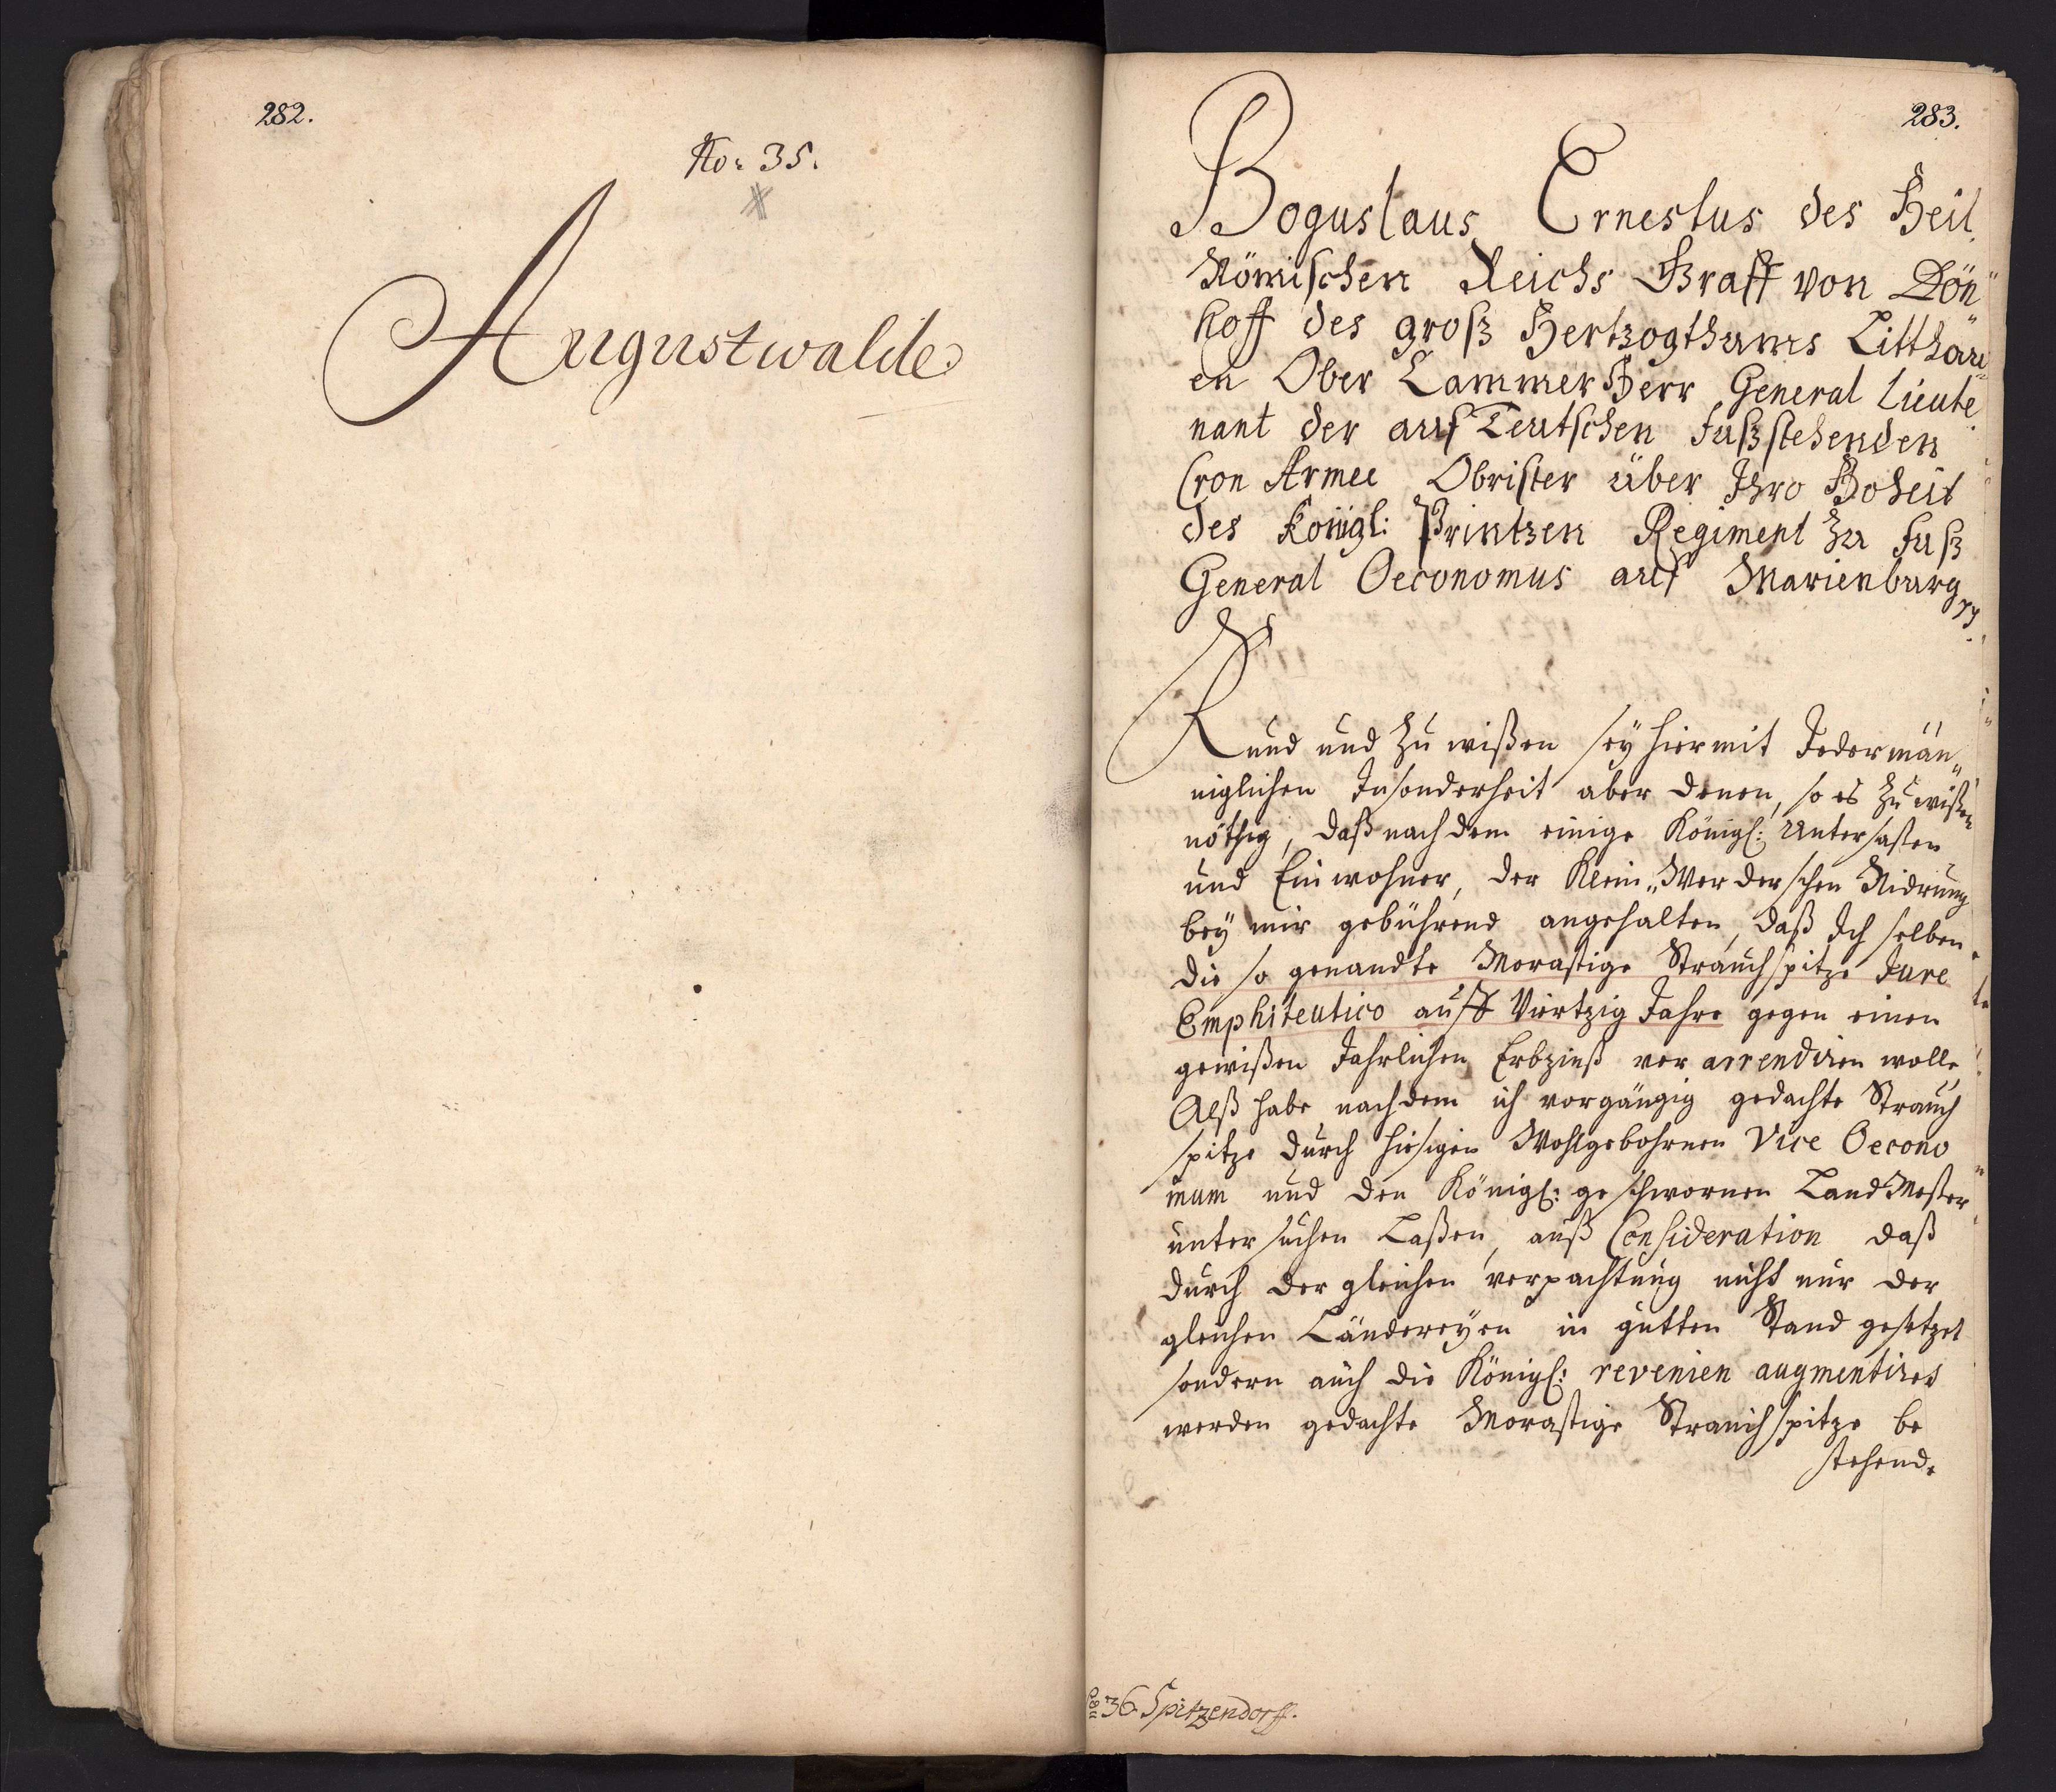 282.
No: 35.
Augustwalde
283.
Boguslaus Ernestus des Heil.
Römischen Reichs Graff von Dön„
hoff des groß Hertzogthums Litthau„
en Ober Cammer Herr General Lieute
nant der auf Teutschen Fuß stehenden
Cron Armee Obrister über Ihro Hoheit
des Königl: Printzen Regiment zu Fuß
General Oeconomus auf Marienburg
Kund und zu wißen sey hiermit Jedermän„
niglichen Insonderheit aber denen, so es zu wißen
nöthig, daß nach dem einige Königl: Untersaßen
und Einwohner, der Klein„Werderschen Nidrung
bey mir gebührend angehalten, daß Ich selben
die so genandte Morastige Strauchspitze Jure
Emphiteutico auff Viertzig Jahre gegen einen
gewißen Jahrlichen Erbzinß ver arrendiren wolle
Alß habe nachdem ich vorgängig gedachte Strauch
spitze durch hiesigen Wohlgebohrnen Vice Oecono„
mum und den Königl: geschwornen Land Meßer
untersuchen Laßen, auß Consideration daß
durch der gleichen verpachtung nicht nur der
gleichen Ländereyen in gutten Stand gesetzet
sondern auch die Königl: revenien augmentiret
werden gedachte Morastige Strauchspitze be
stehend.
36 Spitzendorff.